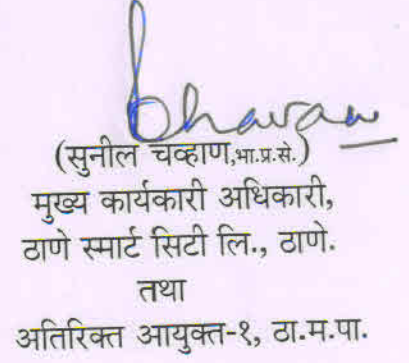 Chavan
(सुनील चव्हाण,भा.प्र.से.)
मुख्य कार्यकारी अधिकारी,
ठाणे स्मार्ट सिटी लि., ठाणे.
तथा
अतिरिक्त आयुक्त-१, ठा.म.पा.